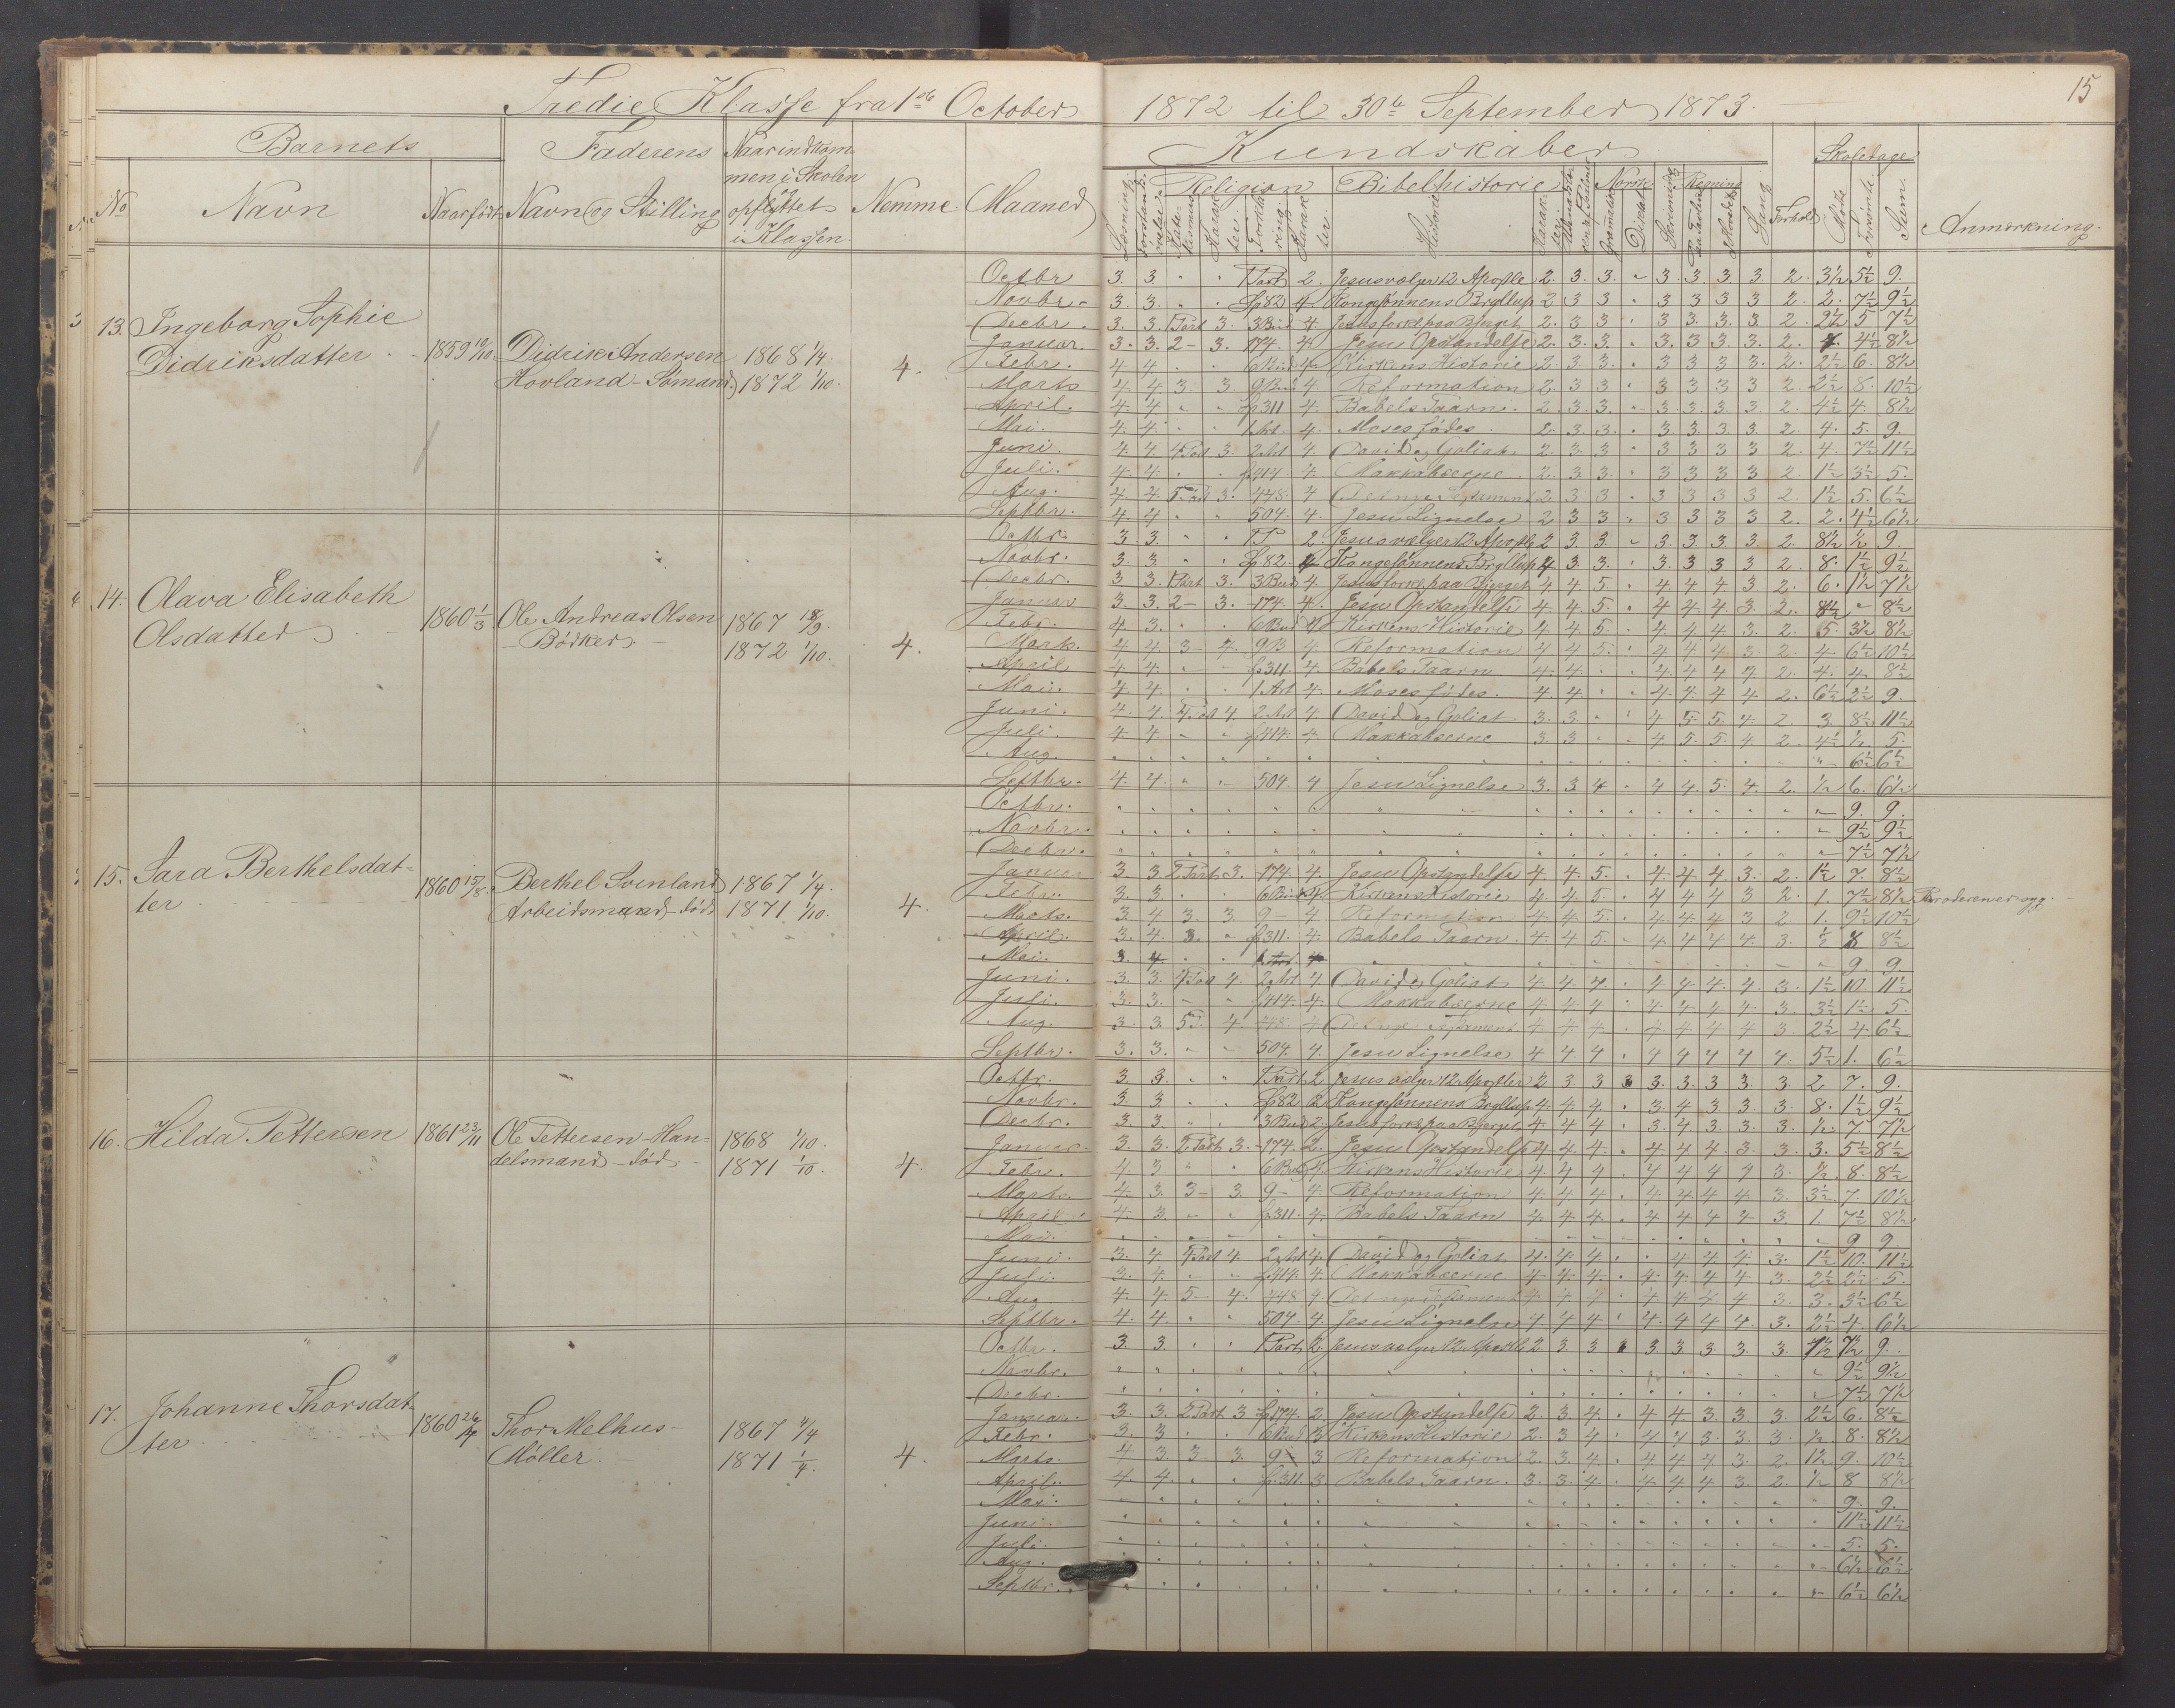 Tredie Klasse fra 1ste October 1872 til 30te September 1873.
15
Barnets
Faderens
Naar indkom-
men i Skolen
og
opflyttet
i Klassen
Kundskaber
Skoledage
No
Navn
Naar født
Navn og Stilling
Nemme
Maaned
Religion
Bibelhistorie
Norsk
Regning
Sang
Forhold
Mødte
Forsømte
Sum.
Anmærkning.
Historie
Dictat
13. Ingeborg Sophie
Didriksdatter
1859 19/10
Didrik Andersen
Hovland - Sømand
1868 1/4
1872 1/10
4.
Octbr 3. 3. " " 1 Part 2. Jesus vælger 12 Apostle 2. 3. 3. " 3. 3. 3. 3. 2. 3½ 5½ 9.
Novbr. 3. 3. " " Sp 82 4 Kongesønnens Bryllup 2 3 3 " 3 3 3 3 2. 2. 7½ 9½
Decbr. 3. 3. 1 Part 3. 3 Bud 4. Jesus forkl. paa Bjerget 2. 3 3 " 3 3. 3. 3. 2. 2½ 5 7½
Januar. 3. 3. 2 - 3. 174 4. Jesu Opstandelse 2. 3. 3. " 3. 3. 3. 3. 2. 4. 4½ 8½
Febr. 4 4 " " 6 Bud 4 Kirkens Historie 2. 3 3. " 3 3 3 3. 2. 2½ 6. 8½
Marts 4 4 3 3. 9 Bud 4. Reformation 2. 3 3 " 3 3 3 3 2. 2½ 8. 10½
April. 4. 4 " " Sp 311 4. Babels Taarn. 2. 3. 3. " 3. 3. 3. 3. 2. 4½ 4. 8½
Mai. 4. 4. " " 1 Art. 4. Moses fødes. 2. 3. 3. " 3. 3. 3. 3. 2. 4. 5. 9.
Juni. 4. 4. 4 Part 3. 2 Art 4 David og Goliat. 2. 3. 3 " 3 3 3 3 2. 4. 7½ 11½
Juli. 4. 4. " " Sp 414 4. Makkabæerne 2. 3 3. " 3 3 3 3 2 1½ 3½ 5.
Aug. 4 4. 5 Part 3. 448. 4 Det nye Testament 2. 3 3 " 3 3 3 3 2. 1½ 5. 6½
Septbr. 4. 4. " " 504. 4. Jesu Lignelse 2 3 3 " 3 3 3 3 2. 2. 4½ 6½
14. Olava Elisabeth
Olsdatter
1860 1/3
Ole Andreas Olsen
- Bødker -
1867 18/9.
1872 1/10.
4.
Octbr. 3. 3. " " 1 P 2. Jesus vælger 12 Apostle 2 3 3. " 3. 3. 3. 3. 2. 8½ ½ 9.
Novbr. 3. 3. " " Sp 82. 4 Kongesønnens Bryllup 4 3 3. " 3. 3 3 3 2. 8. 1½ 9½
Decbr. 3 3. 1 Part 3. 3 Bud 4. Jesus forkl. paa Bjerget 4 4 5. " 4. 4. 4 3 2. 6. 1½ 7½
Januar 3. 3. 2 - 3. 174. 4. Jesu Opstandelse 4 4 5. " 4 4. 4. 3. 2. 8½ " 8½
Febr. 4 3. " " 6 Bud 4 Kirkens Historie 4 4 5 " 4. 4 4 3. 2. 5. 3½ 8½
Marts. 4 4 3 - 4. 9 B 4. Reformation 4 4 5. " 4 4 4 3. 2. 4. 6½ 10½
April 4 4. " " Sp 311. 4. Babels Taarn 4. 4. " " 4 4 4 4 2. 4. 4. 8½
Mai. 4. 4. " " 1 Art 4. Moses fødes. 4 4. " " 4. 4. 4 4 2. 6½ 2½ 9.
Juni. 4. 4. 4 Part 4. 2 Art 4 David og Goliat 3. 3. " " 4 5. 5. 4. 2. 3. 8½ 11½
Juli. 4 4. " " Sp 414 4. Makkabæerne 3. 3 " " 4 5. 5 4. 2. 4½ ½ 5.
Aug. " 6½ 6½
Septbr. 4. 4. " " 504. 4 Jesu Lignelse 3. 3 4 " 4 4. 5. 4. 2. ½ 6. 6½
15. Sara Berthelsdat-
ter
1860 15/8.
Berthel Svinland
Arbeidsmand - død
1867 1/4.
1871 1/10.
4.
Octbr. " 9. 9.
Novbr. " 9½ 9½
Decbr. " 7½ 7½
Januar 3 3. 2 Part 3. 174. 4. Jesu Opstandelse 4. 4. 5. " 4. 4. 4. 3. 2. 1½ 7. 8½
Febr. 3. 3. " 6 Bud 4. Kirkens Historie 4 4 5. " 4 4 4 3 2. 1. 7½ 8½
Marts. 3 4 3. 3. 9 - 4 Reformation 4 4 5 " 4. 4 4 3 2. 1. 9½ 10½
April. 3. 4. 3. " Sp 311. 4. Babels Taarn 4. 4 5. " 4. 4 4 4. 3. ½ 8 8½
Mai. 3. 4 " 9. 9.
Juni. 3. 3. 4 Part 4. 2 Art 4 David og Goliat 4. 4 4. " 4. 4. 4. 4 3. 1½ 10. 11½
Juli. 3. 3. " " Sp 414. 4. Makkabæerne 4 4 4 " 4. 4. 4. 4 3. 3½ 1½ 5.
Aug. 3. 3. 5 P. 4. 448. 4 Det nye Testament 4. 4. 4. " 4. 4 4 4 3. 2½ 4. 6½
Septbr. 3. 3. " " 504. 4. Jesu Lignelse 4 4. 4 " 4 4 4 4 4. 5½ 1. 6½
16. Hilda Pettersen
1861 23/11
Ole Pettersen - Han-
delsmand - død -
1868 1/10.
1871 1/10.
4.
Octbr. 3. 3. " " 1 Part 2 Jesus vælger 12 Apostler 2 3 3 3 3. 3. 3 3. 3. 2 7. 9.
Novbr. 3. 3 " " Sp 82 2 Kongesønnens Bryllup 4. 4. 4. " 3. 4 3 3. 3. 8. 1½ 9½
Decbr. 3. 3 " " 3 Bud 2. Jesus forkl. paa Bjerget 4. 4 4. " 3. 4 3. 3. 3. ½. 7 7½
Januar 3. 3. 2 Part 3. 174. 2. Jesu Opstandelse 4 4 4. " 4. 4 4 3 3. 3. 5½ 8½
Febr. 4. 3 " " 6 Bud 4. Kirkens Historie 4 4 4. " 4 4 4 4 3. ½. 8. 8½
Marts. 4. 3. 3 - 3. 9 - 4. Reformation 4. 4 4. " 4 4 4 4 3. 3½ 7. 10½
April 4. 3. " " Sp 311. 4. Babels Taarn 4. 4. 4. " 4 4 4 4 3. 1. 7½ 8½
Mai. " 9 9
Juni. 3. 4. 4 Part 4. 2 Art 4. David og Goliat 4. 4. 4. " " 4. 4. 4. 3. 1½ 10. 11½
Juli. 3. 4. " " Sp 414. 4. Makkabæerne 4 4. 4. " 4. 4. 4. 4 3. 2½ 2½ 5.
Aug. 4. 4. 5 - 4. 448 4. Det nye Testament 4. 4. 4 " 4. 4. 4 4 3. 3. 3½ 6½
Septbr. 4. 4. " " 504. 4. Jesu Lignelse 4 4 4 " 4. 4 4 4. 3. 2½ 4. 6½
17. Johanne Thorsdat-
ter
1860 26/4
Thor Melhus -
Møller
1867 4/4
1871 1/4.
4.
Octbr. 3. 3. " " 1 Part 2. Jesus vælger 12 Apostle 2. 3 3 " 3 3. 3 3. 3. 1½ 7½ 9.
Novbr. " 9½ 9½
Decbr. " 7½ 7½
Januar. 3. 3. 2 Part 3 Sp 174. 2. Jesu Opstandelse 2. 3. 4. " 4. 4 3. 3. 3. 2½ 6. 8½
Febr. 3. 3. " " 6 Bud 3 Kirkens Historie 2. 3 4 " 4 4 3. 3. 3. ½ 8. 8½
Marts. 4. 3. 3 - 3. 9 3 Reformation 2. 3. 4. " 4. 4 4 3. 2. 1½ 9. 10½
April. 4. 4. " " Sp 311. 3 Babels Taarn. 3. 3. 4. " 4 4 4 3. 2. ½ 8 8½
Mai. " 9. 9.
Juni. " 11½ 11½
Juli. " 5. 5.
Aug. " 6½ 6½
Septbr. " 6½ 6½